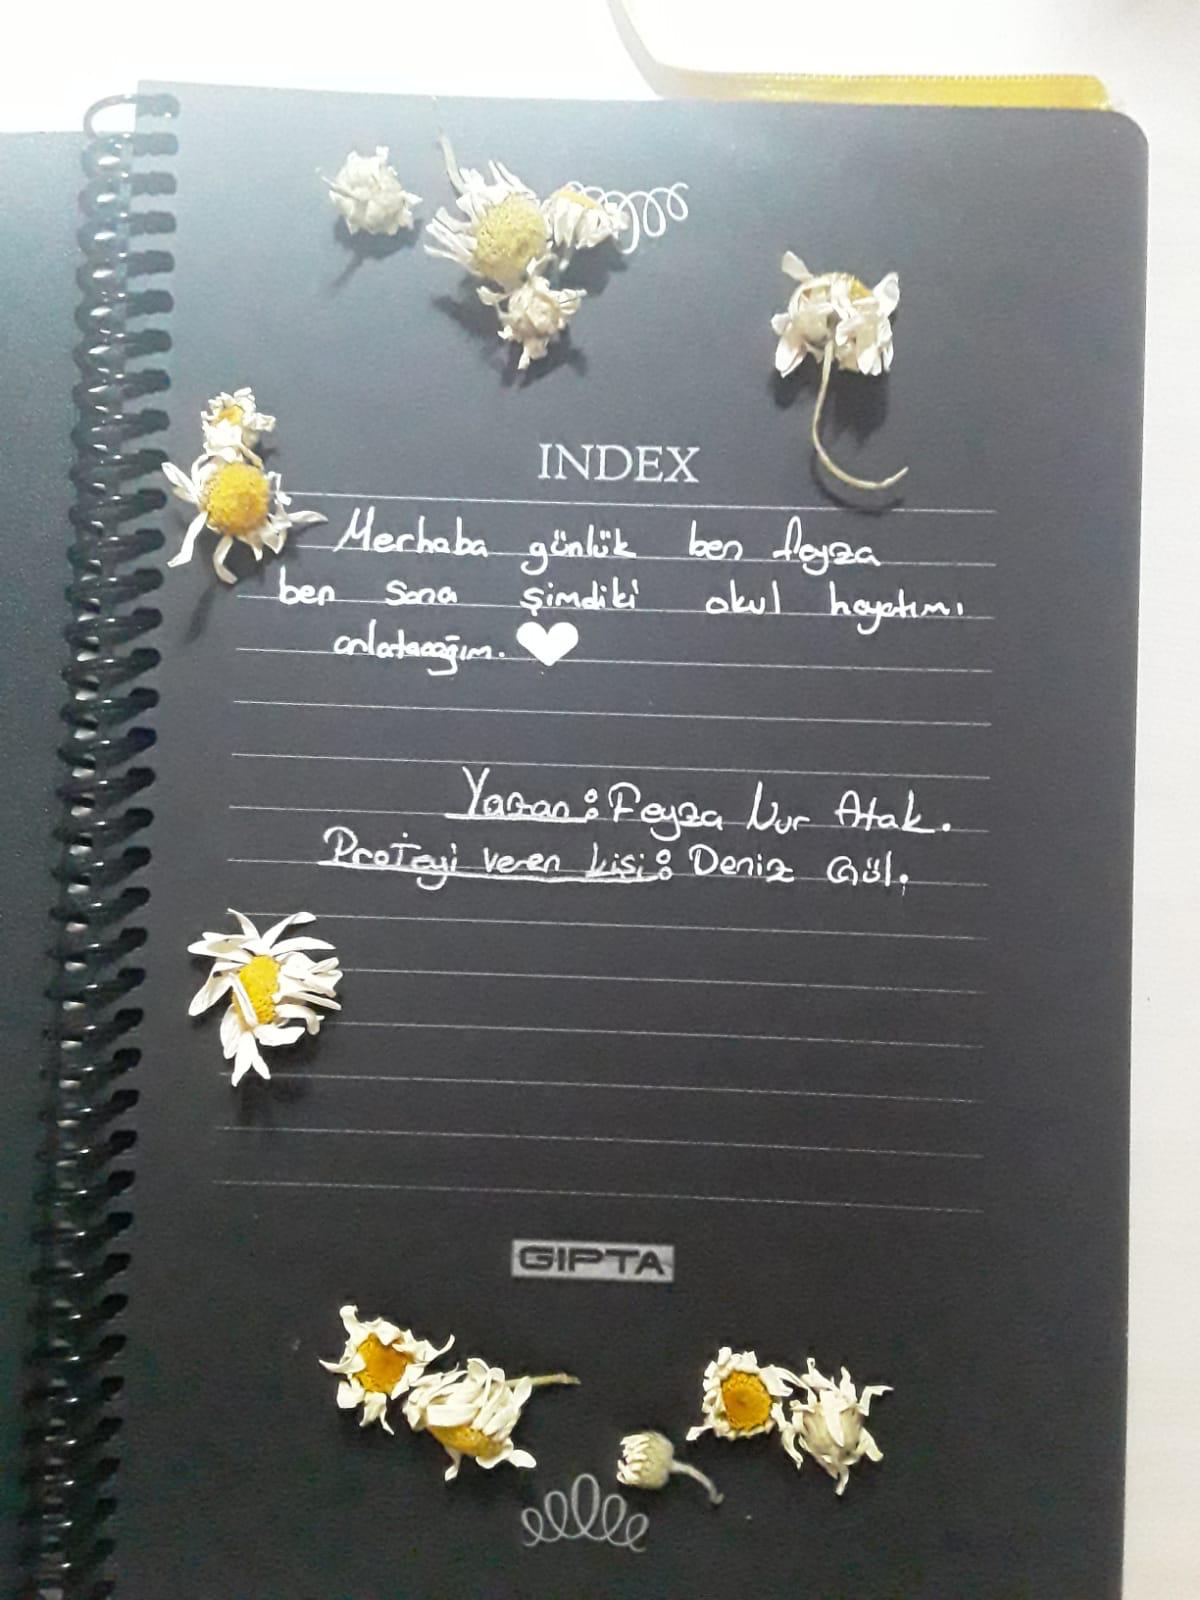 INDEX
Merhaba günlük ben feyza
ben sana şimdiki okul hayatımı
anlatacağım.
Yazan: Feyza Nur Atak.
Projeyi veren kişi: Deniz Gül.
GIPTA